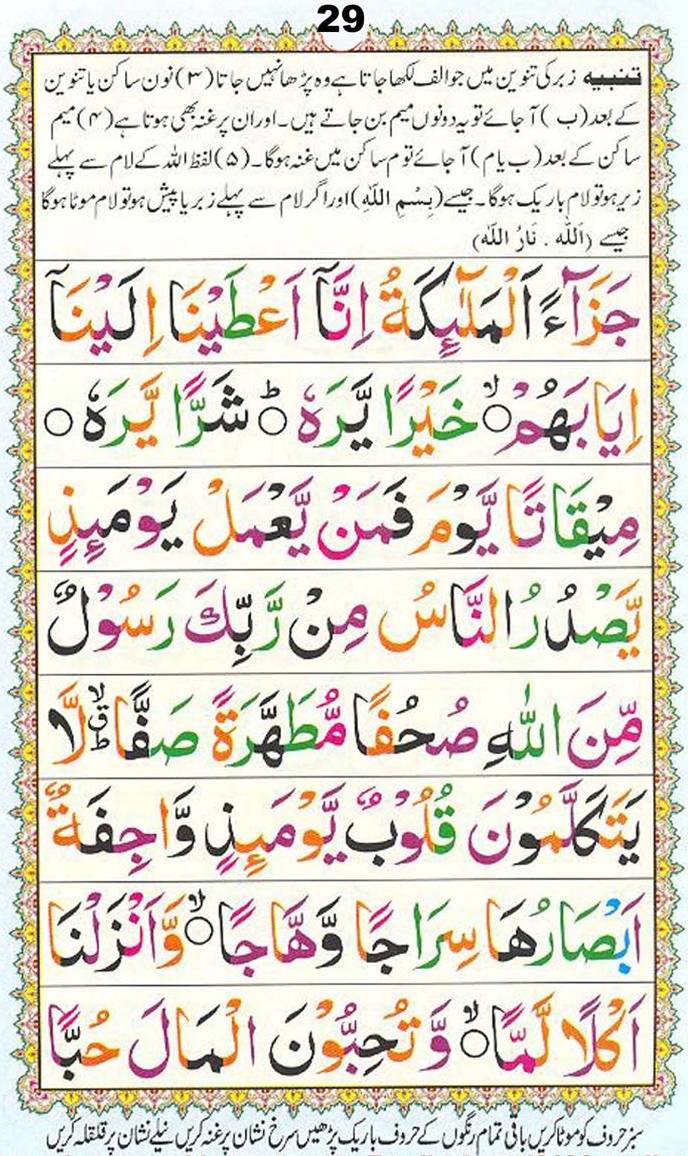 29
تنبیہ زبر کی تنوین میں جو الف لکھا جاتا ہے وہ پڑھا نہیں جاتا (۳) نون ساکن یا تنوین
کے بعد (ب) آجائے تو یہ دونوں میم بن جاتے ہیں۔ اور ان پر غنہ بھی ہوتا ہے (۴) میم
ساکن کے بعد (ب یا م) آجائے تو م ساکن میں غنہ ہوگا۔ (۵) لفظ اللہ کے لام سے پہلے
زیر ہو تو لام باریک ہوگا۔ جیسے (بِسْمِ اللّٰہِ) اور اگر لام سے پہلے زبر یا پیش ہو تو لام موٹا ہوگا
جیسے (اَللّٰہ۔ نَارُ اللّٰہ)
جَزَآءً اَلْمَلٰٓئِكَةُ اِنَّآ اَعْطَيْنَا اِلَيْنَآ
اِيَابَهُمْ ۙ○ خَيْرًا يَّرَهٗ ○ؕ شَرًّا يَّرَهٗ ○
مِيْقَاتًا يَّوْمَ فَمَنْ يَّعْمَلْ يَوْمَئِذٍ
يَّصْدُرُ النَّاسُ مِنْ رَّبِّكَ رَسُوْلٌ
مِّنَ اللّٰهِ صُحُفًا مُّطَهَّرَةً صَفًّا لَّا
يَتَكَلَّمُوْنَ قُلُوْبٌ يَّوْمَئِذٍ وَّاجِفَةٌ
اَبْصَارُهَا سِرَاجًا وَّهَّاجًا ۙ○ وَّاَنْزَلْنَا
اَكْلًا لَّمًّا ۙ○ وَّتُحِبُّوْنَ الْمَالَ حُبًّا
سبز حروف کو موٹا کریں باقی تمام رنگوں کے حروف باریک پڑھیں سرخ نشان پر غنہ کریں نیلے نشان پر قلقلہ کریں